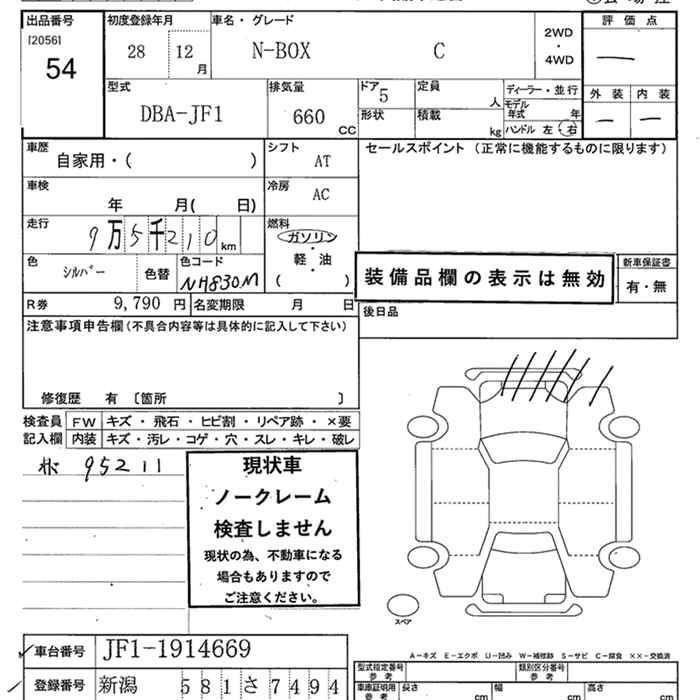 出品番号 初度登録年月 車名・グレード 評価点
[2056]
54
28 12月 N-BOX C 2WD・4WD
型式 排気量 ドア 5 定員 人 ディーラー・並行 外装 内装
DBA-JF1 660 CC 形状 積載 kg モデル年式 年
ハンドル 左 右
車歴 シフト セールスポイント (正常に機能するものに限ります)
自家用・( ) AT
車検 冷房
年 月( 日) AC
走行 燃料
9万5千210km ガソリン
軽・油
( )
色 シルバー 色替 色コード NH830M
装備品欄の表示は無効 新車保証書
有・無
R券 9,790 円 名変期限 月 日 後日品
注意事項申告欄(不具合内容等は具体的に記入して下さい)
修復歴 有 〔箇所 〕
検査員 FW キズ・飛石・ヒビ割・リペア跡・×要
記入欄 内装 キズ・汚レ・コゲ・穴・スレ・キレ・破レ
95211
現状車
ノークレーム
検査しません
現状の為、不動車になる
場合もありますので
ご注意ください。
スペア
A-キズ E-エクボ U-凹み W-補修跡 S-サビ C-腐食 ××-交換済
車台番号 JF1-1914669
型式指定番号 参考 類別区分番号 参考
登録番号 新潟 581 さ 7494
車庫証明用 参考 長さ cm 幅 cm 高さ cm